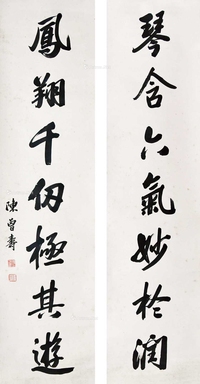 琴含六氣妙於潤
鳳翔千仞極其遊
陳曾壽